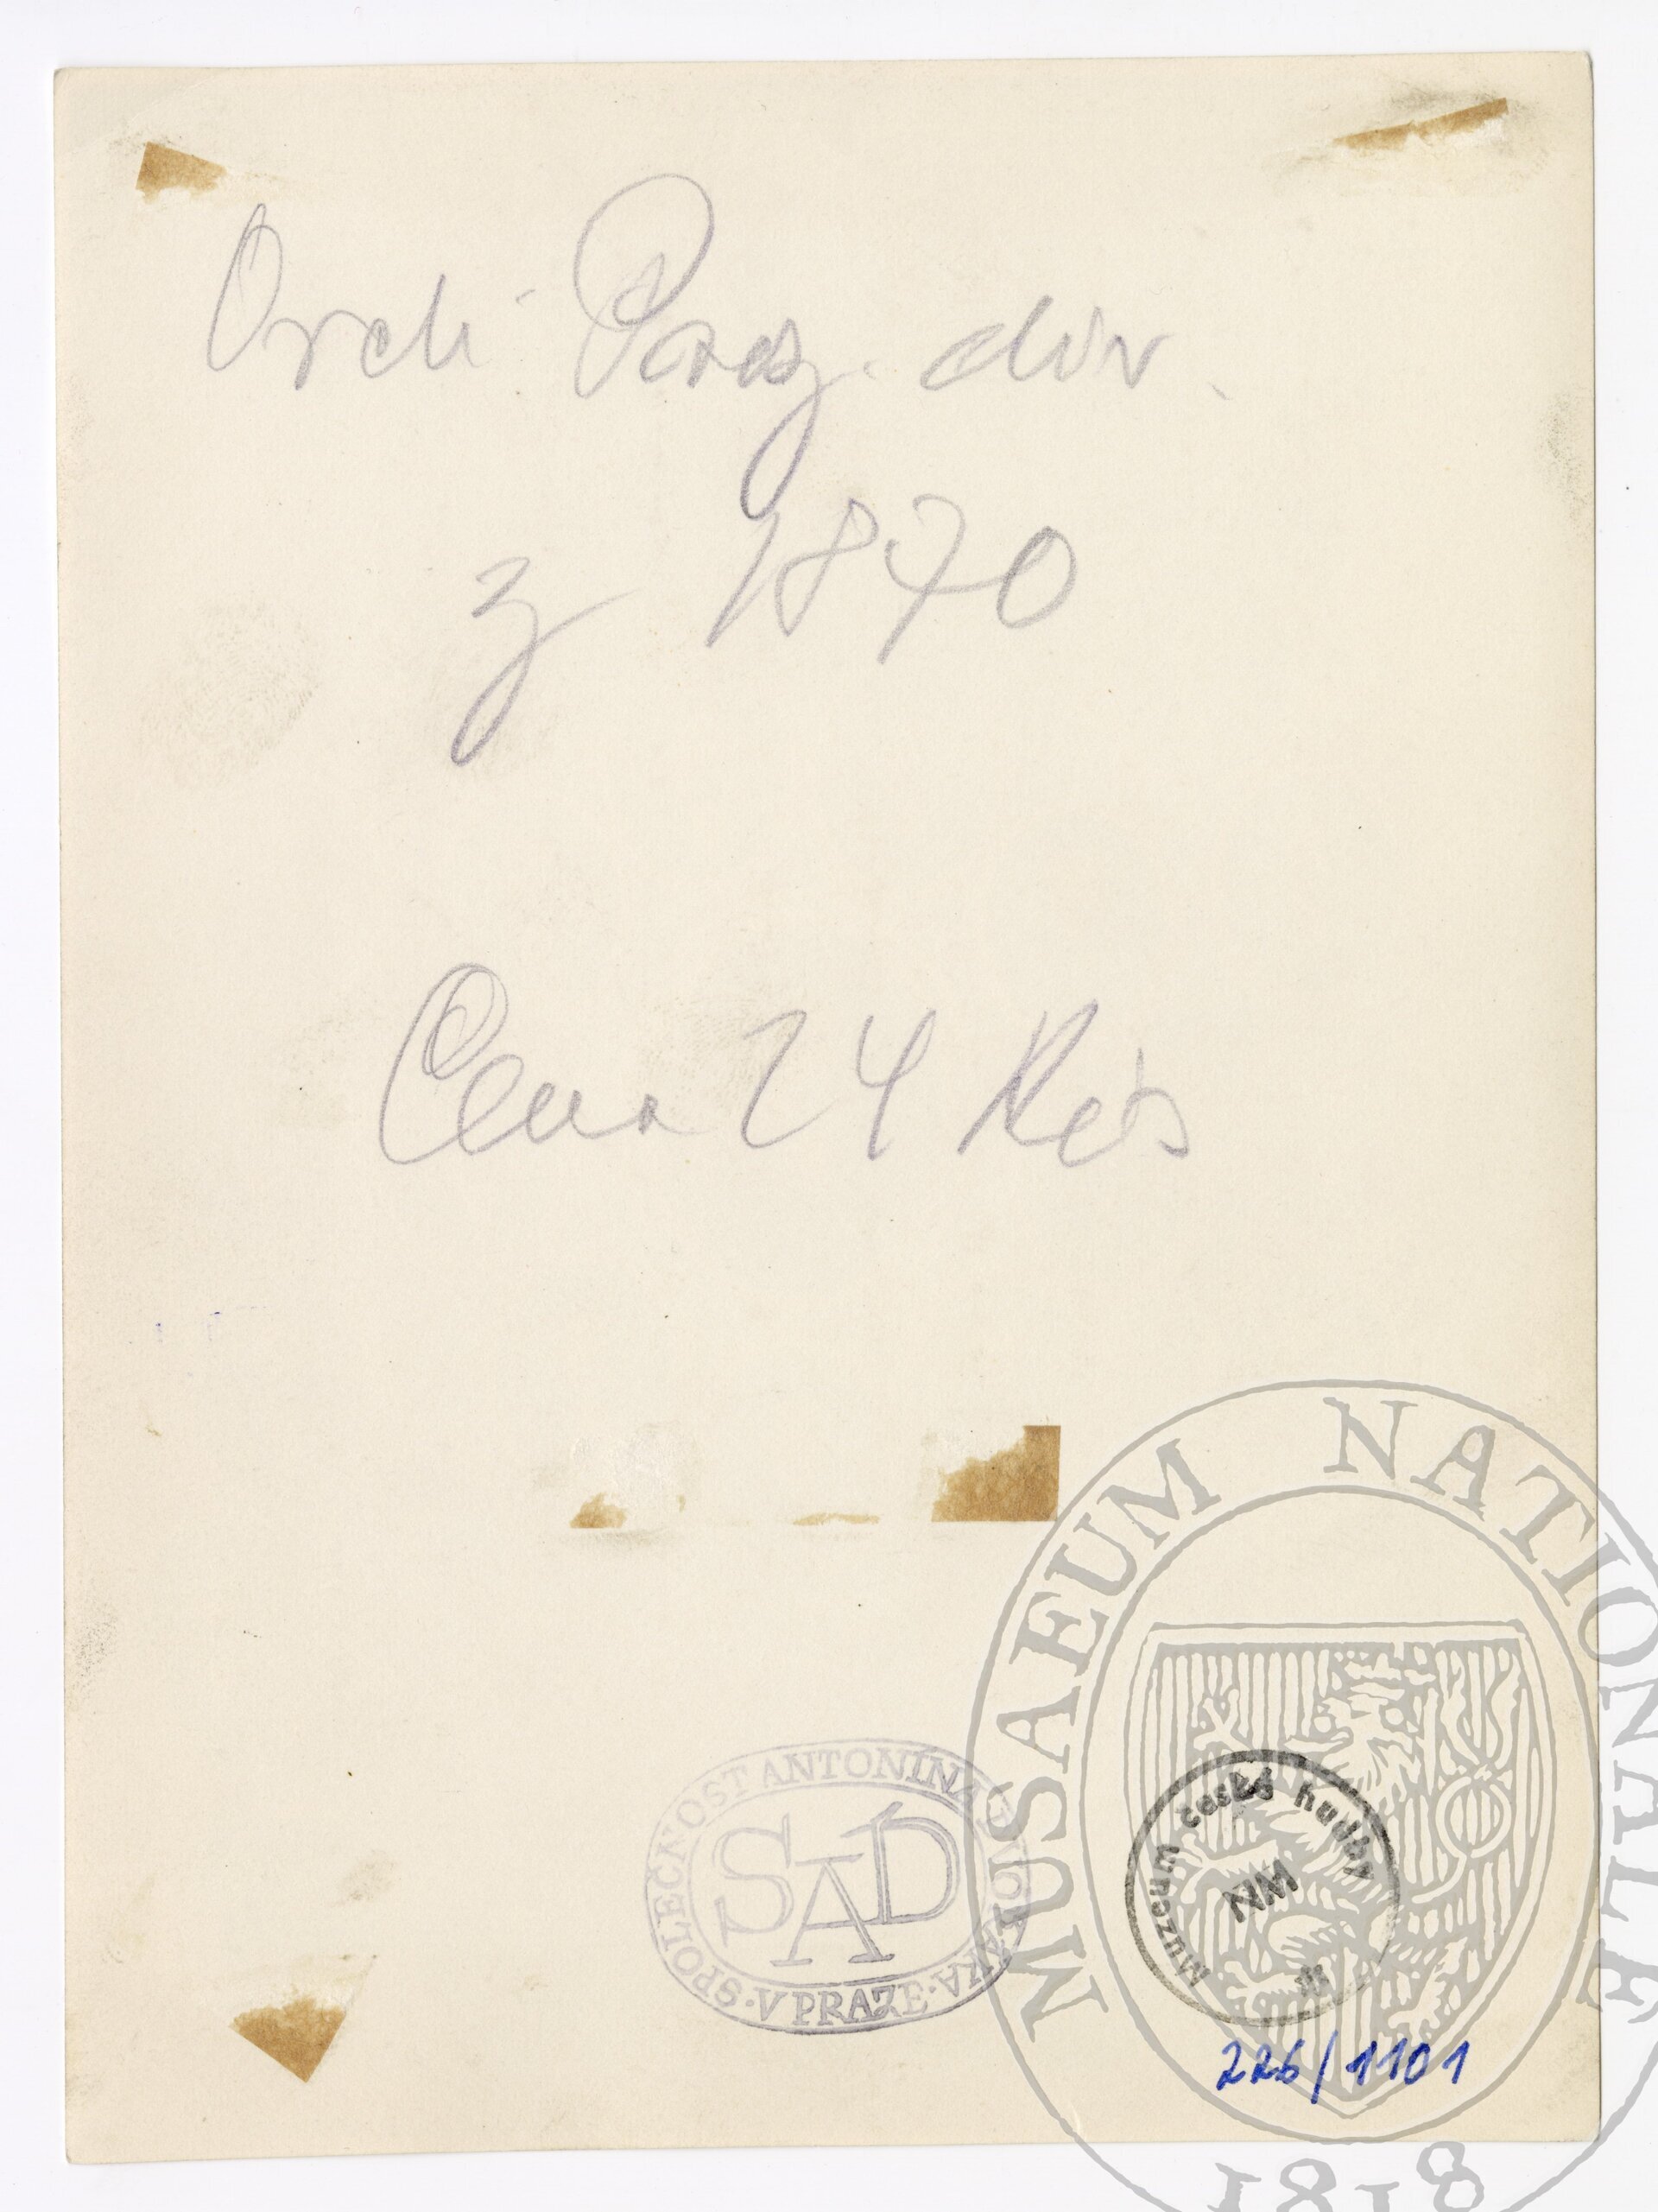 Orch. Proz. div.
z 1870
Cena 24 Kčs
SPOLEČNOST ANTONÍNA DVOŘÁKA · V PRAZE ·
SAD
Muzeum české hudby
NM
226/1101
MUSAEUM NATIONALE
1818